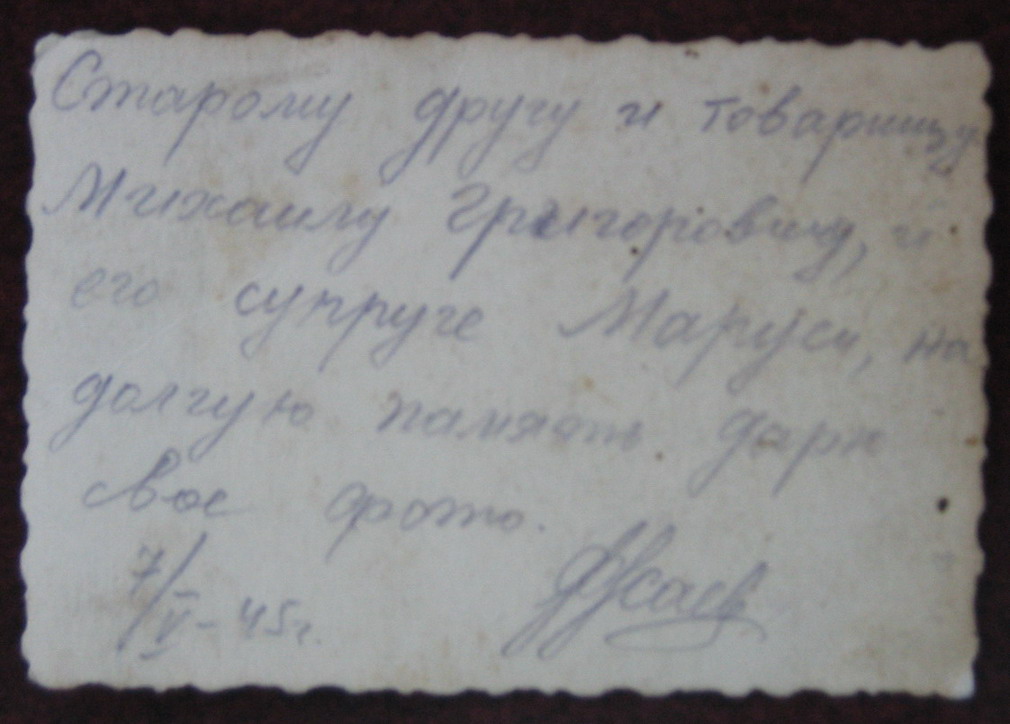 Старому другу и товарищу
Михаилу Григоровичу, и
его супруге Маруси, на
долгую память дарю
свое фото.
7/V-45г.